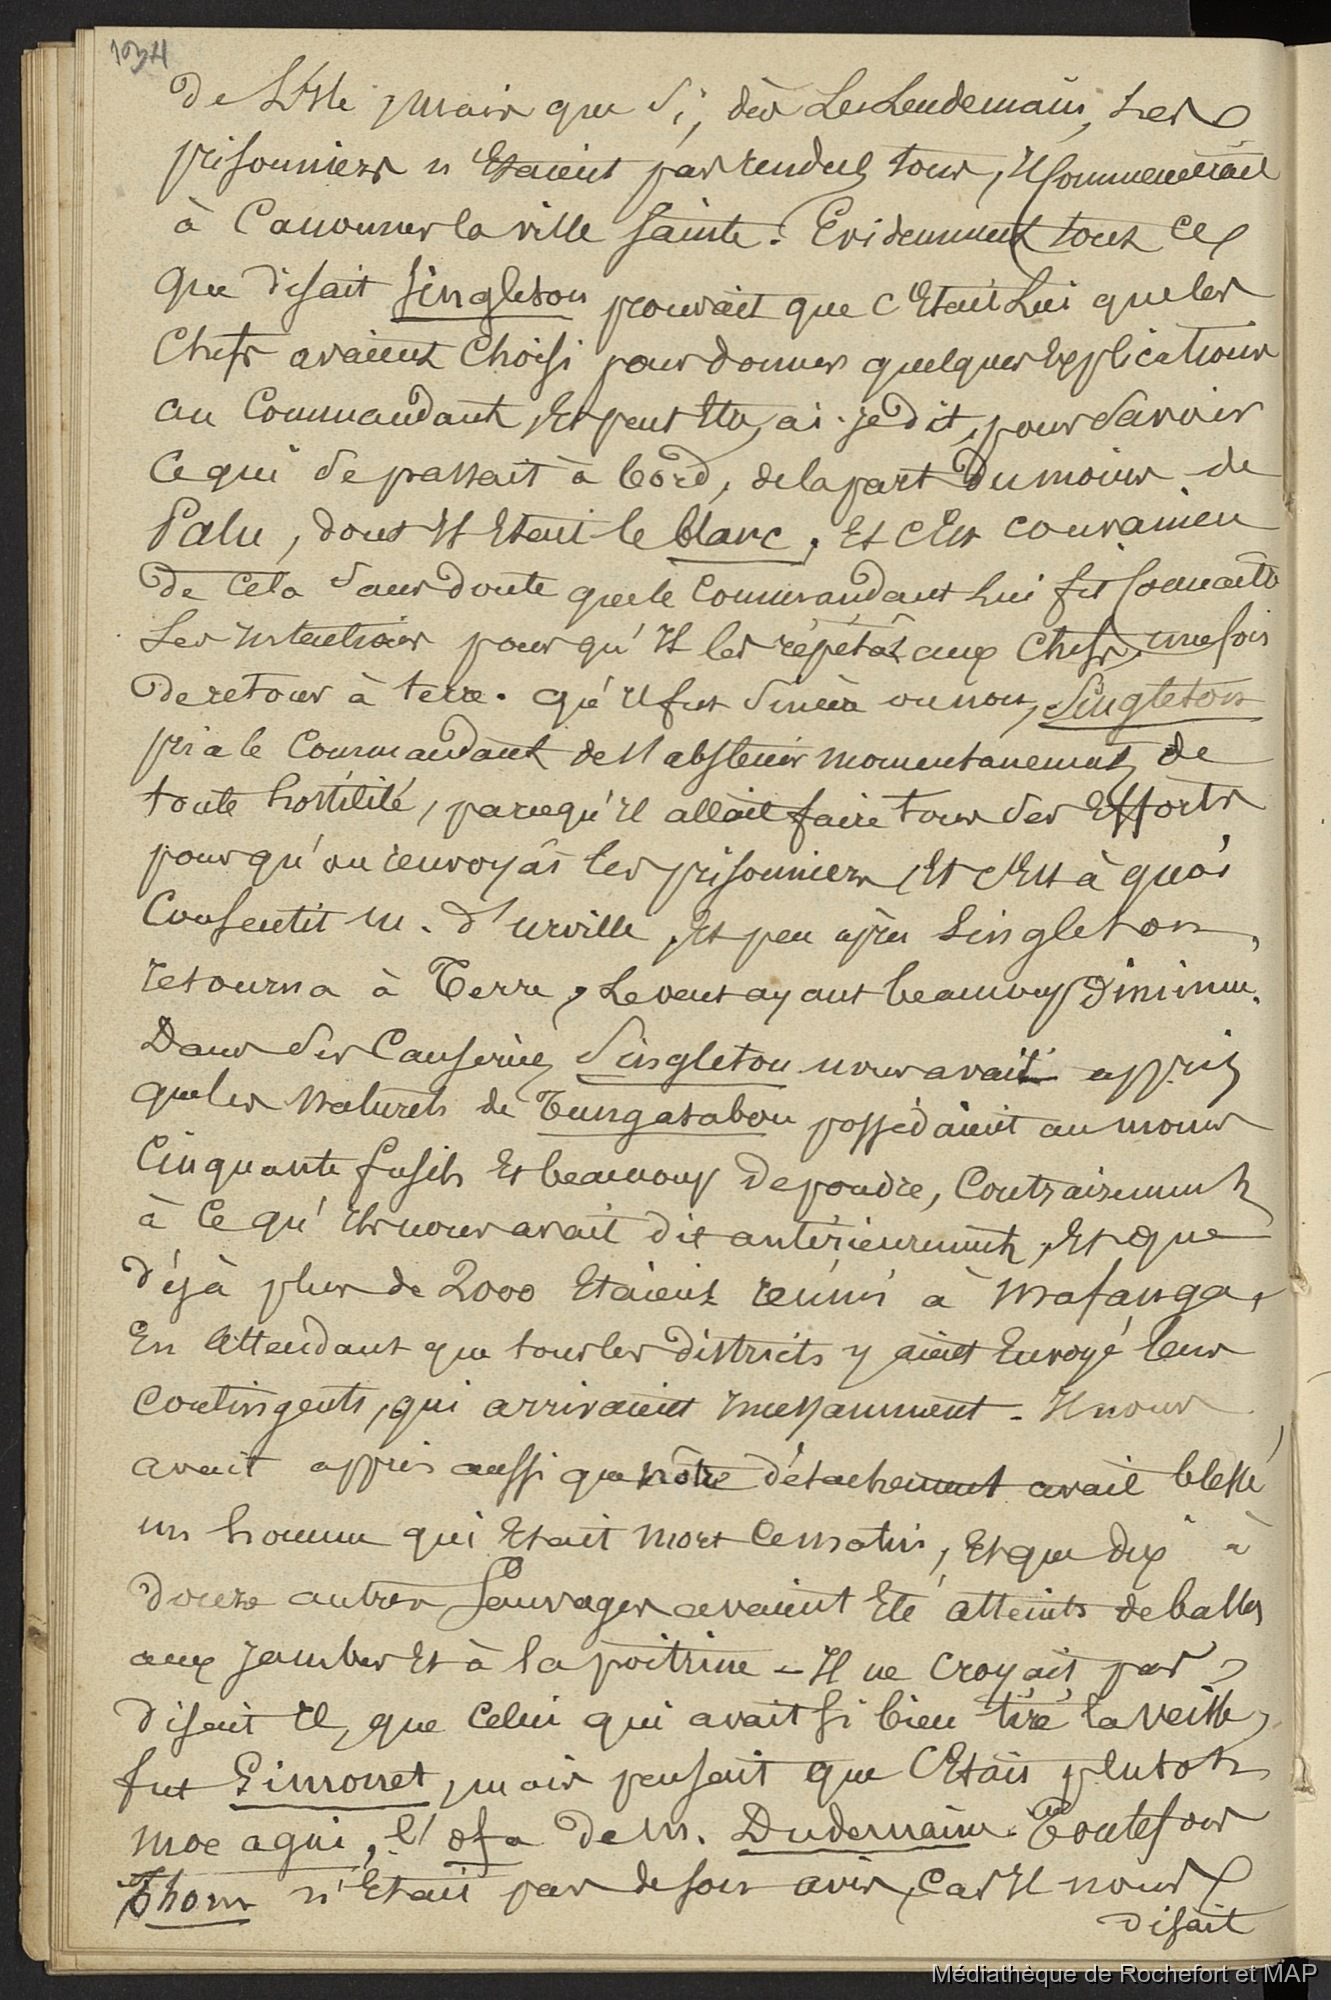 1034
de L'Isle, mais que si, dès Le Lendemain, Les
prisonniers n'Etaient pas rendus tous, Il commencerait
à Canonner la ville Sainte. Evidemment tout ce
que disait Singleton prouvait que c'Etait Lui que les
Chefs avaient Choisi pour donner quelques Explications
au Commandant, Et peut Etre, ai-je dit, pour Savoir
Ce qui Se passait à bord, de la part Du moins de
Palu, dont Il Etait le blanc, Et c'Est convaincu
de Cela Sans doute que le Commandant Lui fit Connaitre
Ses Intentions pour qu'Il les répétât aux Chefs, une fois
de retour à terre. Qu'Il fut Sincère ou non, Singleton
pria le Commandant de s'abstenir momentanement de
toute hostilité, parcequ'Il allait faire tous Ses Efforts
pour qu'on renvoyât les prisonniers, Et c'Est à quoi
Consentit M. d'Urville, Et peu après Singleton,
retourna à Terre, Le vent ayant beaucoup Diminué.
Dans Ses Causeries Singleton nous avait appris
que les Naturels de Tungatabou possédaient au moins
Cinquante fusils Et beaucoup De poudre, Contrairement
à Ce qu'Ils nous avait dit antérieurement, Et que
déjà plus de 2000 Etaient réunis à Mafanga,
En Attendant que tous les Districts y aient Envoyé leurs
contingents, qui arrivaient Incessamment - Il nous
avait appris aussi que nôtre détachement avait blessé
un homme qui Etait mort Ce matin, Et que dix à
Douze autres Sauvages avaient Eté atteints de balles
aux Jambes Et à la poitrine - Il ne Croyait pas,
disait Il, que Celui qui avait Si bien tiré la Veille,
fut Simonet, mais pensait que C'Etait plutot
moe agui, l'ofa de M. Dudemaine. Toutefois
Thom n'Etait pas de son avis, Car Il nous
disait
Médiathèque de Rochefort et MAP